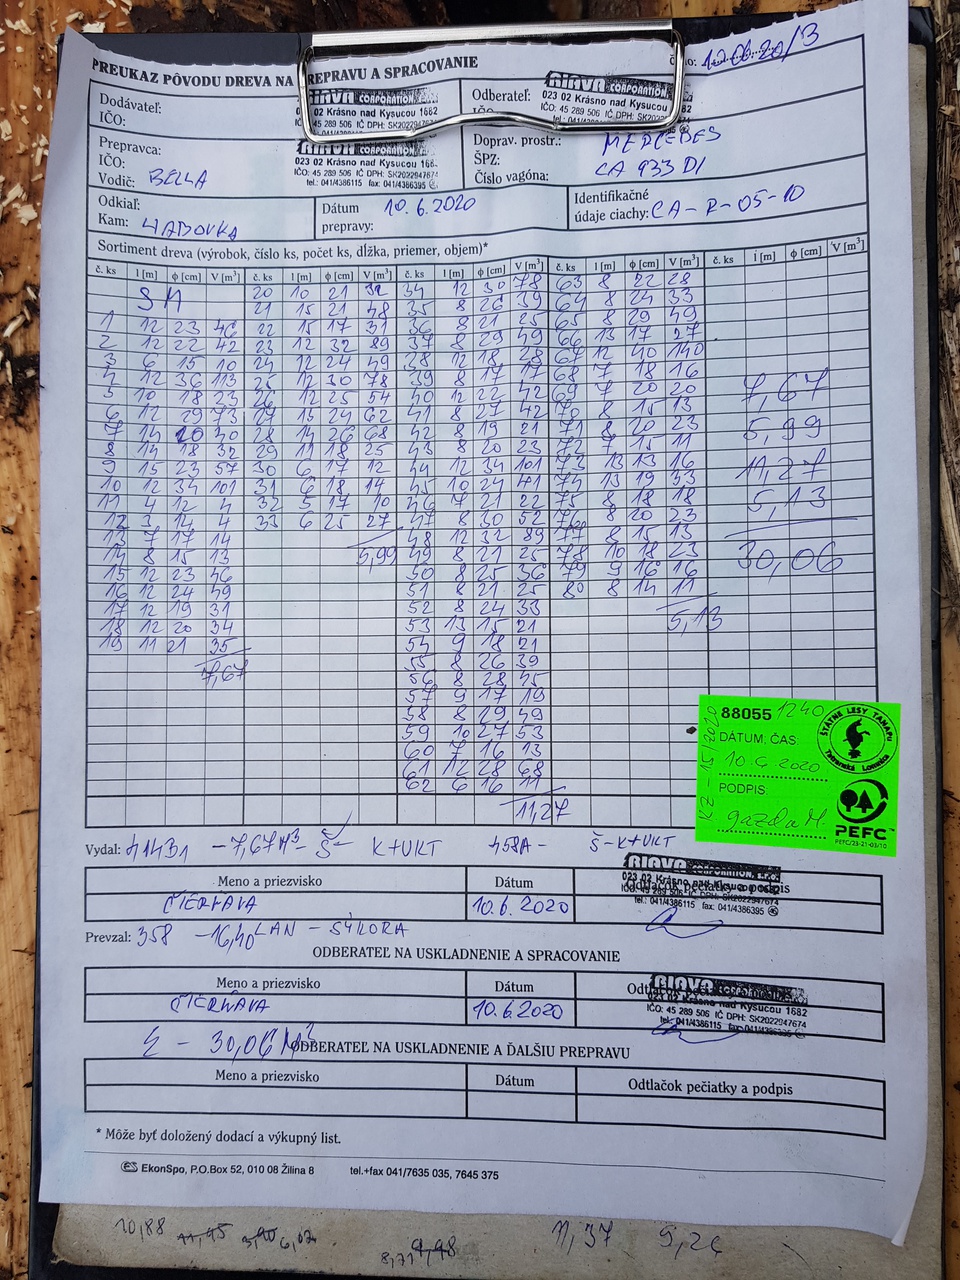 PREUKAZ PÔVODU DREVA NA PREPRAVU A SPRACOVANIE
číslo: 12.06.20/3
Dodávateľ:
IČO:
RIAVA CORPORATION
023 02 Krásno nad Kysucou 1682
IČO: 45 289 506 IČ DPH: SK2022947674
Odberateľ:
IČO:
RIAVA CORPORATION
023 02 Krásno nad Kysucou
IČO: 45 289 506 IČ DPH: SK2022947674
Prepravca:
IČO:
Vodič: BELLA
023 02 Krásno nad Kysucou 1682
IČO: 45 289 506 IČ DPH: SK2022947674
tel.: 041/4386115 fax: 041/4386395
Doprav. prostr.: MERCEDES
ŠPZ: CA 933 DI
Číslo vagóna:
Odkiaľ:
Kam: HABOVKA
Dátum
prepravy: 10.6.2020
Identifikačné
údaje ciachy: CA-R-05-10
Sortiment dreva (výrobok, číslo ks, počet ks, dĺžka, priemer, objem)*
č. ks l [m] ϕ [cm] V [m³] č. ks l [m] ϕ [cm] V [m³] č. ks l [m] ϕ [cm] V [m³] č. ks l [m] ϕ [cm] V [m³] č. ks l [m] ϕ [cm] V [m³]
SM 20 10 21 32 34 12 30 78 63 8 22 28
21 15 21 48 35 8 26 39 64 8 24 33
1 12 23 46 22 15 17 31 36 8 21 25 65 8 29 49
2 12 22 42 23 12 32 89 37 8 29 49 66 13 17 27
3 6 15 10 24 12 24 49 38 12 18 28 67 12 40 140
4 12 36 113 25 12 30 78 39 8 17 17 68 7 18 16
5 10 18 23 26 12 25 54 40 12 22 42 69 7 20 20 7,67
6 12 29 73 27 15 24 62 41 8 27 42 70 8 15 13
7 14 20 40 28 14 26 68 42 8 19 21 71 8 20 23 5,99
8 14 18 32 29 11 18 25 43 8 20 23 72 7 15 11
9 15 23 57 30 6 17 12 44 12 34 101 73 13 13 16 11,27
10 12 34 101 31 6 18 14 45 10 24 41 74 13 19 33
11 4 12 4 32 5 17 10 46 7 21 22 75 8 18 18 5,13
12 3 14 4 33 6 25 27 47 8 30 52 76 8 20 23
13 7 17 14 48 12 32 89 77 8 15 13
14 8 15 13 5,99 49 8 21 25 78 10 18 23 30,06
15 12 23 46 50 8 25 36 79 9 16 16
16 12 24 49 51 8 21 25 80 8 14 11
17 12 19 31 52 8 24 33
18 12 20 34 53 13 15 21 5,13
19 11 21 35 54 9 18 21
7,67 55 8 26 39
56 8 28 45
57 9 17 19
58 8 29 49
59 10 27 53
60 7 16 13
61 12 28 68
62 6 16 11
11,27
88055 1240
DÁTUM, ČAS:
10.6 2020
PODPIS:
gazda M.
KZ - 15/2020
ŠTÁTNE LESY TANAPu
Tatranská Lomnica
PEFC
PEFC/23-21-03/10
Vydal: 41431 -7,67M³ Š- K+UKT 458A- Š-K+UKT
Meno a priezvisko Dátum Odtlačok pečiatky a podpis
ČIERŇAVA 10.6.2020
RIAVA CORPORATION s.r.o.
023 02 Krásno nad Kysucou
IČO: 45 289 506 IČ DPH: SK2022947674
tel.: 041/4386115 fax: 041/4386395
Prevzal: 358 -16,40 LAN - SÝKORA
ODBERATEĽ NA USKLADNENIE A SPRACOVANIE
Meno a priezvisko Dátum
ČIERŇAVA 10.6.2020
RIAVA CORPORATION
023 02 Krásno nad Kysucou 1682
IČO: 45 289 506 IČ DPH: SK2022947674
tel.: 041/4386115 fax: 041/4386395
Σ - 30,06 M³
ODBERATEĽ NA USKLADNENIE A ĎALŠIU PREPRAVU
Meno a priezvisko Dátum Odtlačok pečiatky a podpis
* Môže byť doložený dodací a výkupný list.
EkonSpo, P.O.Box 52, 010 08 Žilina 8 tel.+fax 041/7635 035, 7645 375
10,88 11,45 3,90 6,02 8,71 9,98 11,37 9,26